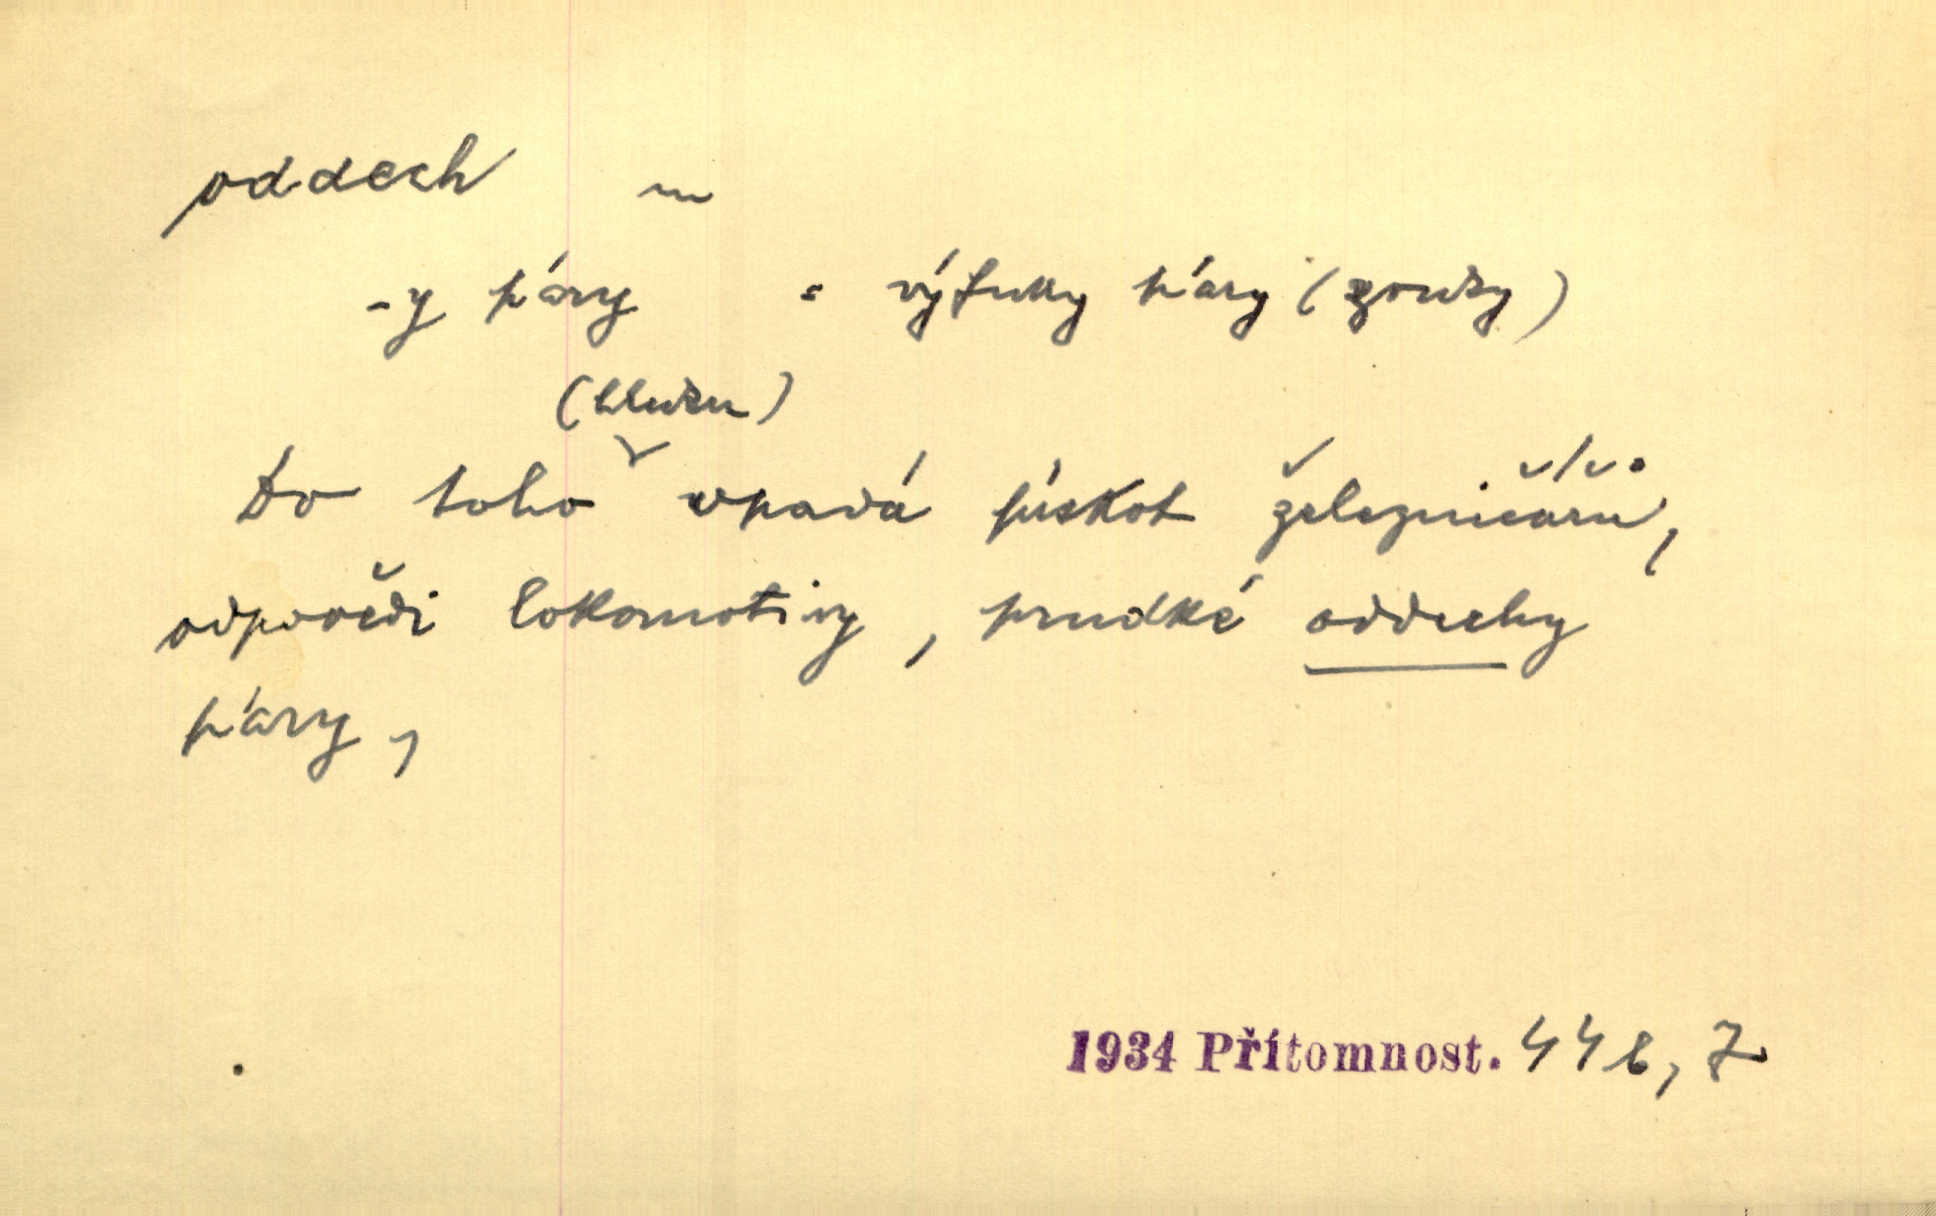 oddech m
-y páry = výfuky páry (zvuky)
(hluku)
Do toho vpadá pískot železničářů,
odpovědi lokomotivy, prudké oddechy
páry,
1934 Přítomnost. 448, 2